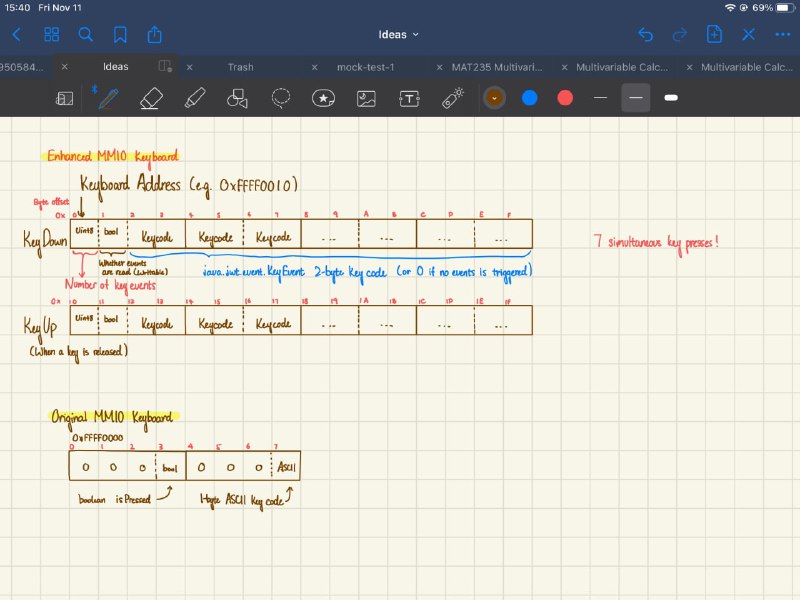 15:40 Fri Nov 11
69%
Ideas
950584...
Ideas
Trash
mock-test-1
MAT235 Multivari...
Multivariable Calc...
Multivariable Calc...
Enhanced MMIO Keyboard
Keyboard Address (e.g. 0xFFFF0010)
Byte offset
0x 0 1 2 3 4 5 6 7 8 9 A B C D E F
Key Down
Uint8 bool Keycode Keycode Keycode ... ... ... ...
7 simultaneous key presses!
Whether events
are read (Writable)
java.awt.event.KeyEvent 2-byte key code (or 0 if no events is triggered)
Number of key events
0x 10 11 12 13 14 15 16 17 18 19 1A 1B 1C 1D 1E 1F
Key Up
Uint8 bool Keycode Keycode Keycode ... ... ... ...
(When a key is released)
Original MMIO Keyboard
0xFFFF0000
0 1 2 3 4 5 6 7
0 0 0 bool 0 0 0 ASCII
boolean isPressed
1-byte ASCII Key code